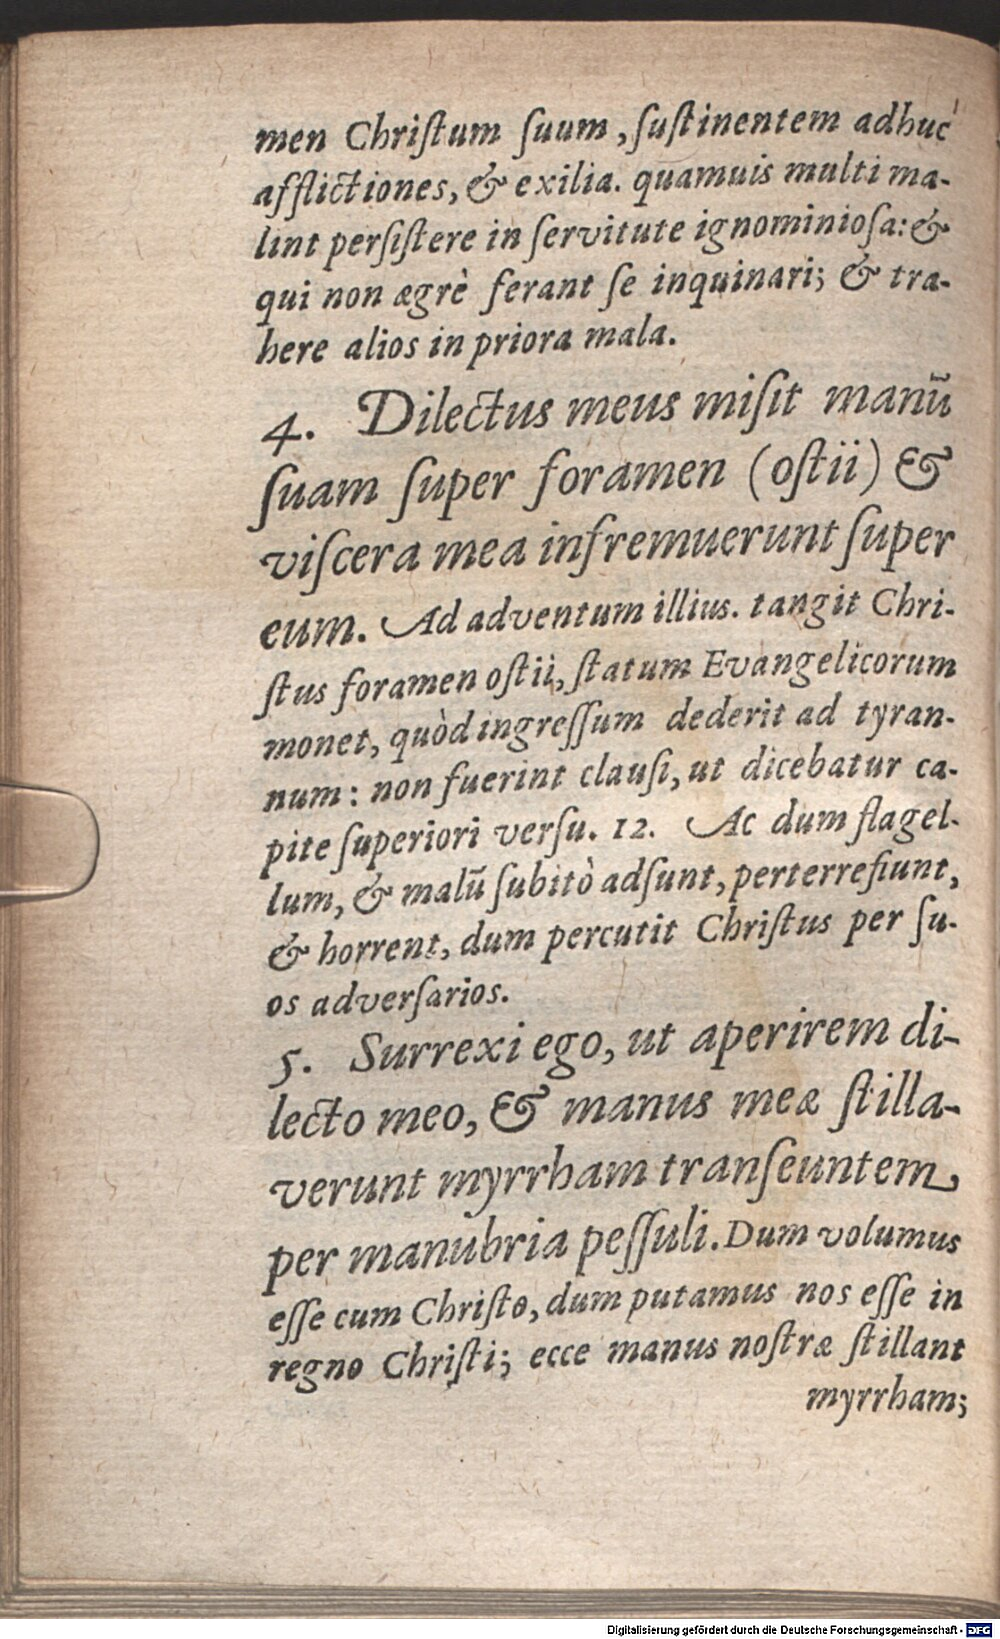 men Chriſtum ſuum, ſuſtinentem adhuc
afflictiones, & exilia. quamuis multi ma-
lint perſiſtere in ſervitute ignominioſa: &
qui non ægrè ferant ſe inquinari; & tra-
here alios in priora mala.
4. Dilectus meus miſit manū
ſuam ſuper foramen (oſtii) &
viſcera mea infremuerunt ſuper
eum. Ad adventum illius. tangit Chri-
ſtus foramen oſtii, ſtatum Evangelicorum
monet, quòd ingreſſum dederit ad tyran-
num: non fuerint clauſi, ut dicebatur ca-
pite ſuperiori verſu. 12. Ac dum flagel-
lum, & malū ſubitò adſunt, perterrefiunt,
& horrent, dum percutit Chriſtus per ſu-
os adverſarios.
5. Surrexi ego, ut aperirem di-
lecto meo, & manus meæ ſtilla-
verunt myrrham tranſeuntem
per manubria peſſuli. Dum volumus
eſſe cum Chriſto, dum putamus nos eſſe in
regno Chriſti; ecce manus noſtræ ſtillant
myrrham;
Digitalisierung gefördert durch die Deutsche Forschungsgemeinschaft - DFG